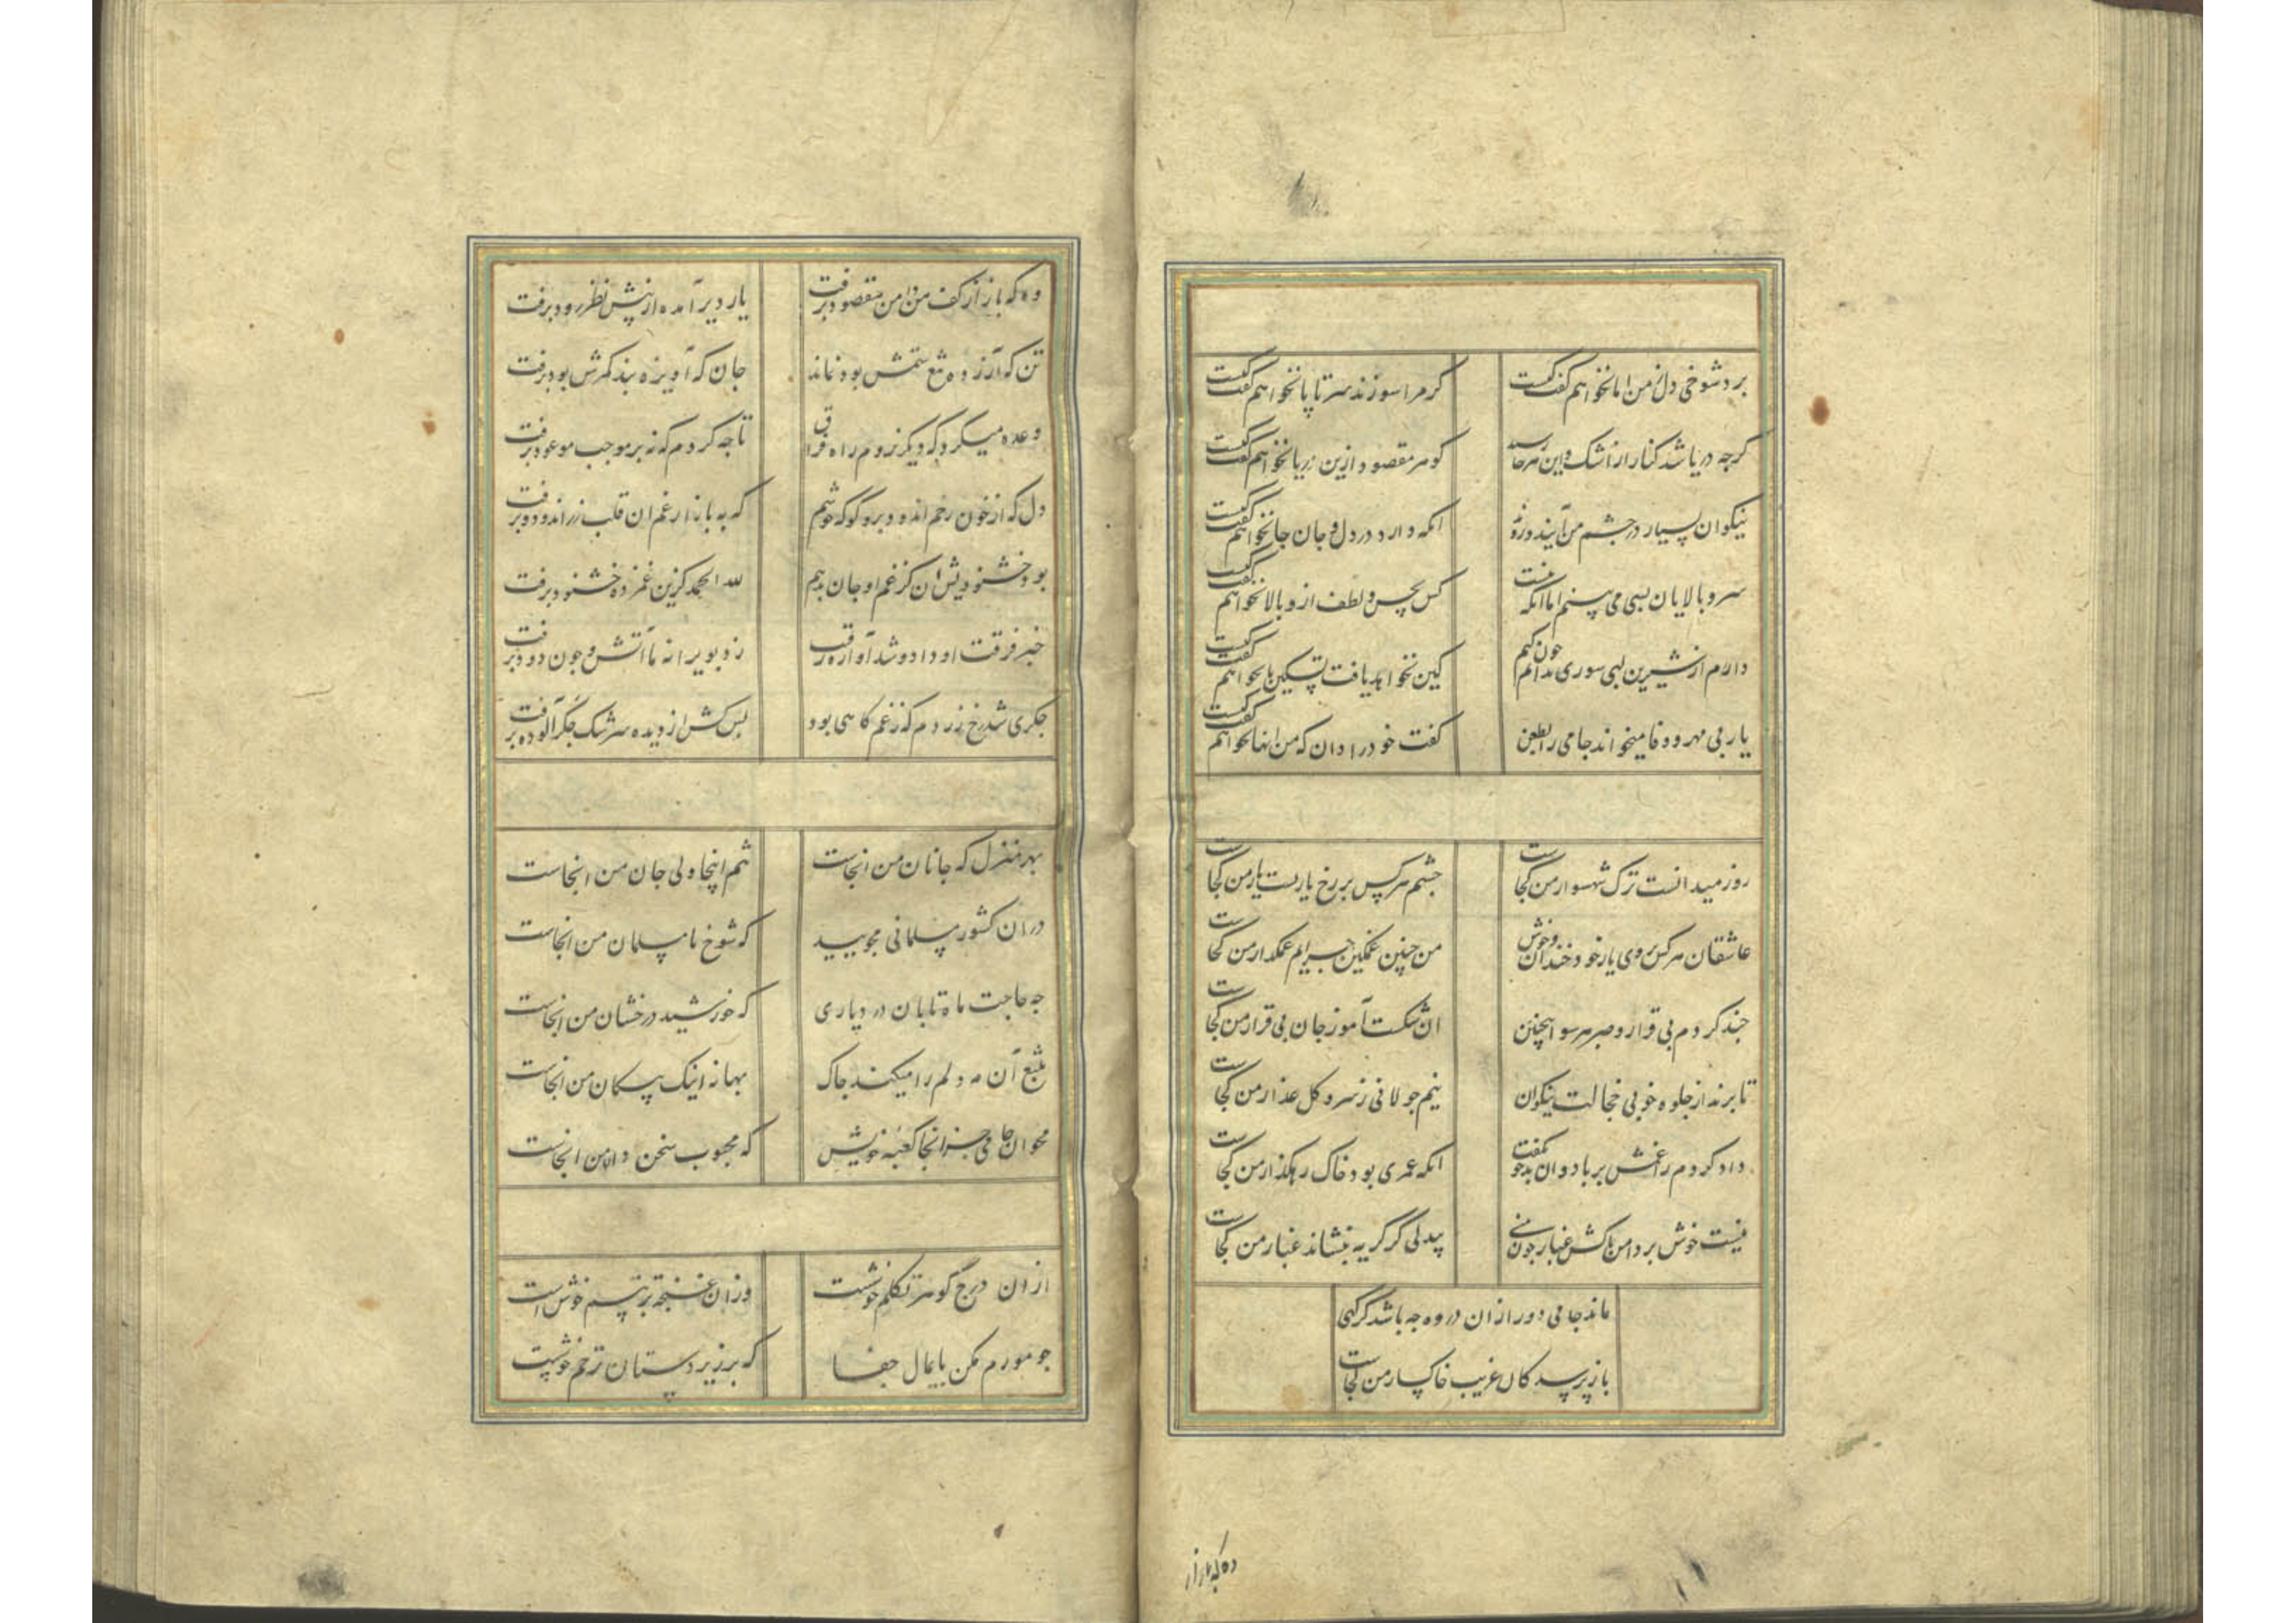 برد شوخی دل ز من اما نخواهم گفت کیست
کر مرا سوزند سر تا پا نخواهم گفت کیست
کرجه دریا شد کنار از اشک و این
کوهر مقصود ازین دریا نخواهم گفت کیست
نیکوان بسیار در جشم من آیند و رونه
انکه دارد در دل و جان جا نخواهم گفت کیست
سرو بالایان بسی می بینم اما انکه نیست
کس بحسن و لطف ازو بالا نخواهم گفت کیست
دارم از شیرین لبی سوری ندانم جون کنم
کین نخواهد یافت تسکین یا نخواهم گفت کیست
یار بی مهر و وفا میخواند جامی را بطعن
کفت خود را دان که من انها نخواهم گفت کیست
روز میدانست ترک شهسوار من کجاست
جشم هر کس بر رخ یاریست یار من کجاست
عاشقان هر کس بروی یار خود خندان و خوش
من جنین غمکین جرایم غمکسار من کجاست
جند کردم بی قرار و صبر هر سو اینچنین
ان شکست آموز جان بی قرار من کجاست
تا برند از جلوه خوبی خجالت نیکوان
نیم جولانی ز سرو کل عذار من کجاست
داد کردم را غمش بر باد و ان بدخو نگفت
انکه عمری بود خاک رهکذار من کجاست
نیست خوش بر دامن پاکش غبار جون منی
بیدلی کز گریه بنشاند غبار من کجاست
ماند جامی دور ازان در وه جه باشد کر کهی
باز پرسد کان غریب خاکسار من کجاست
وه که باز از
وه که باز از کف من دامن مقصود برفت
یار دیر آمده از پیش نظر زود برفت
تن که آزرده تیغ ستمش بود نماند
جان که آویزه بند کمرش بود برفت
وعده میکرد که دیکر نروم راه فراق
تا جه کردم که نه بر موجب موعود برفت
دل که از خون رخم اندود برو کو که خوشم
که به بازار غم ان قلب زر اندود برفت
بود خشنودیش ان کز غم او جان بدهم
لله الحمد کزین غمزده خشنود برفت
خبر فرقت او داد و شد آواره رقیب
زد بویرانه ما آتش و جون دود برفت
جکری شد رخ زردم که ز غم کاهی بود
بس کش از دیده سرشک جکر آلوده برفت
بهر منزل که جانان من انجاست
تنم اینجا ولی جان من انجاست
دران کشور مسلمانی مجویید
که شوخ نامسلمان من انجاست
جه حاجت ماه تابان در دیاری
که خورشید درخشان من انجاست
بتیغ آن مه دلم را میکند جاک
بهانه اینک پیکان من انجاست
مخوان جامی جز انجا کعبه خویش
که محبوب سخن دان من انجاست
ازان درج کوهر تکلم خوشست
وزان غنجه تر تبسم خوش است
جو مورم مکن پایمال جفا
که بر زیردستان ترحم خوشست